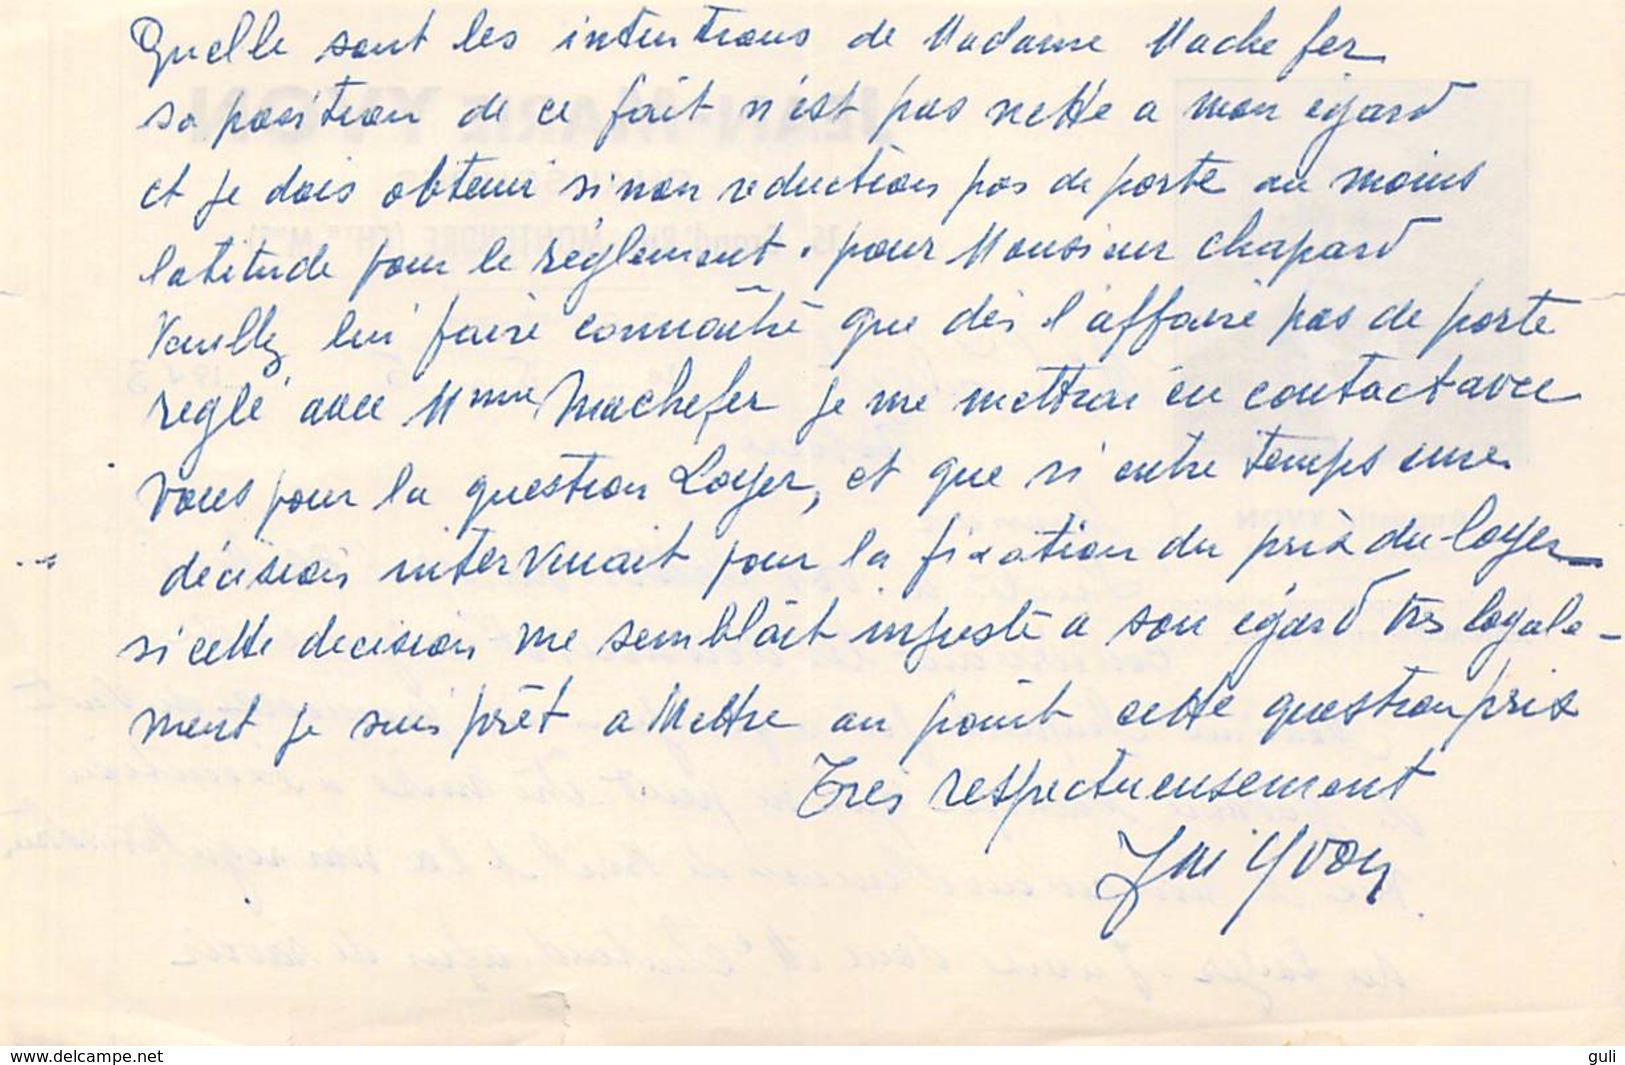 Quelle sont les intentions de Madame Machefer
sa position de ce fait n'est pas nette a mon égard
et je dois obtenir sinon reduction pas de porte au moins
latitude pour le réglement. pour Monsieur Chapard
Veuillez lui faire connaître que dès l'affaire pas de porte
reglé avec Mme Machefer je me mettrai en contact avec
vous pour la question Loyer, et que si entre temps une
décision intervenait pour la fixation du prix du loyer
si cette decision me semblait injuste a son égard très légale-
ment je suis prêt a Mettre au point cette question prix
Très respectueusement
JM Yvon
www.delcampe.net
guli